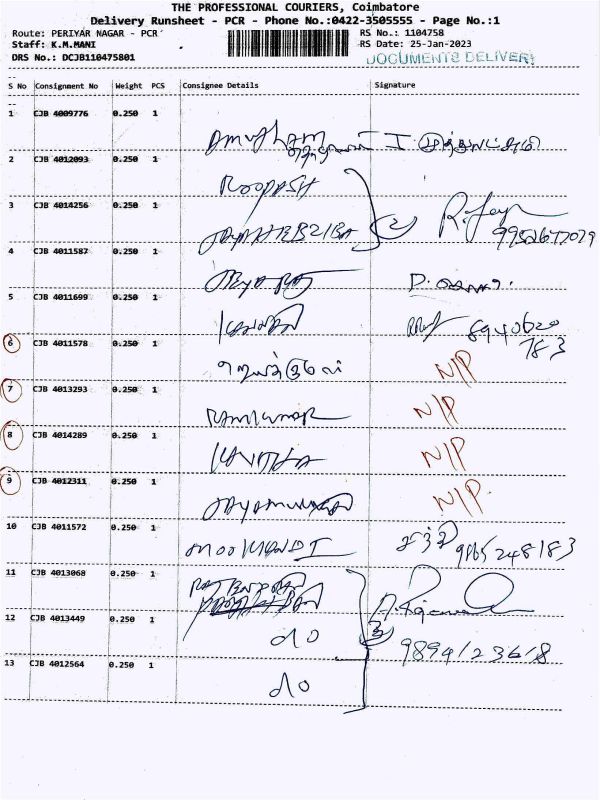 THE PROFESSIONAL COURIERS, Coimbatore
Delivery Runsheet - PCR - Phone No.:0422-3505555 - Page No.:1
Route: PERIYAR NAGAR - PCR RS No.: 1104758
Staff: K.M.MANI RS Date: 25-Jan-2023
DRS No.: DCJB110475801 DOCUMENTS DELIVERY
S No Consignment No Weight PCS Consignee Details Signature
1 CJB 4009776 0.250 1
2 CJB 4012093 0.250 1 ROOPASH
3 CJB 4014256 0.250 1 2
4 CJB 4011587 0.250 1
5 CJB 4011699 0.250 1 KANNAN 8940620
783
6 CJB 4011578 0.250 1 N/P
7 CJB 4013293 0.250 1 RAMKUMAR N/P
8 CJB 4014289 0.250 1 KAVITHA N/P
9 CJB 4012311 0.250 1 N/P
10 CJB 4011572 0.250 1 9865248183
11 CJB 4013068 0.250 1
12 CJB 4013449 0.250 1 do 3
9894123618
13 CJB 4012564 0.250 1 do